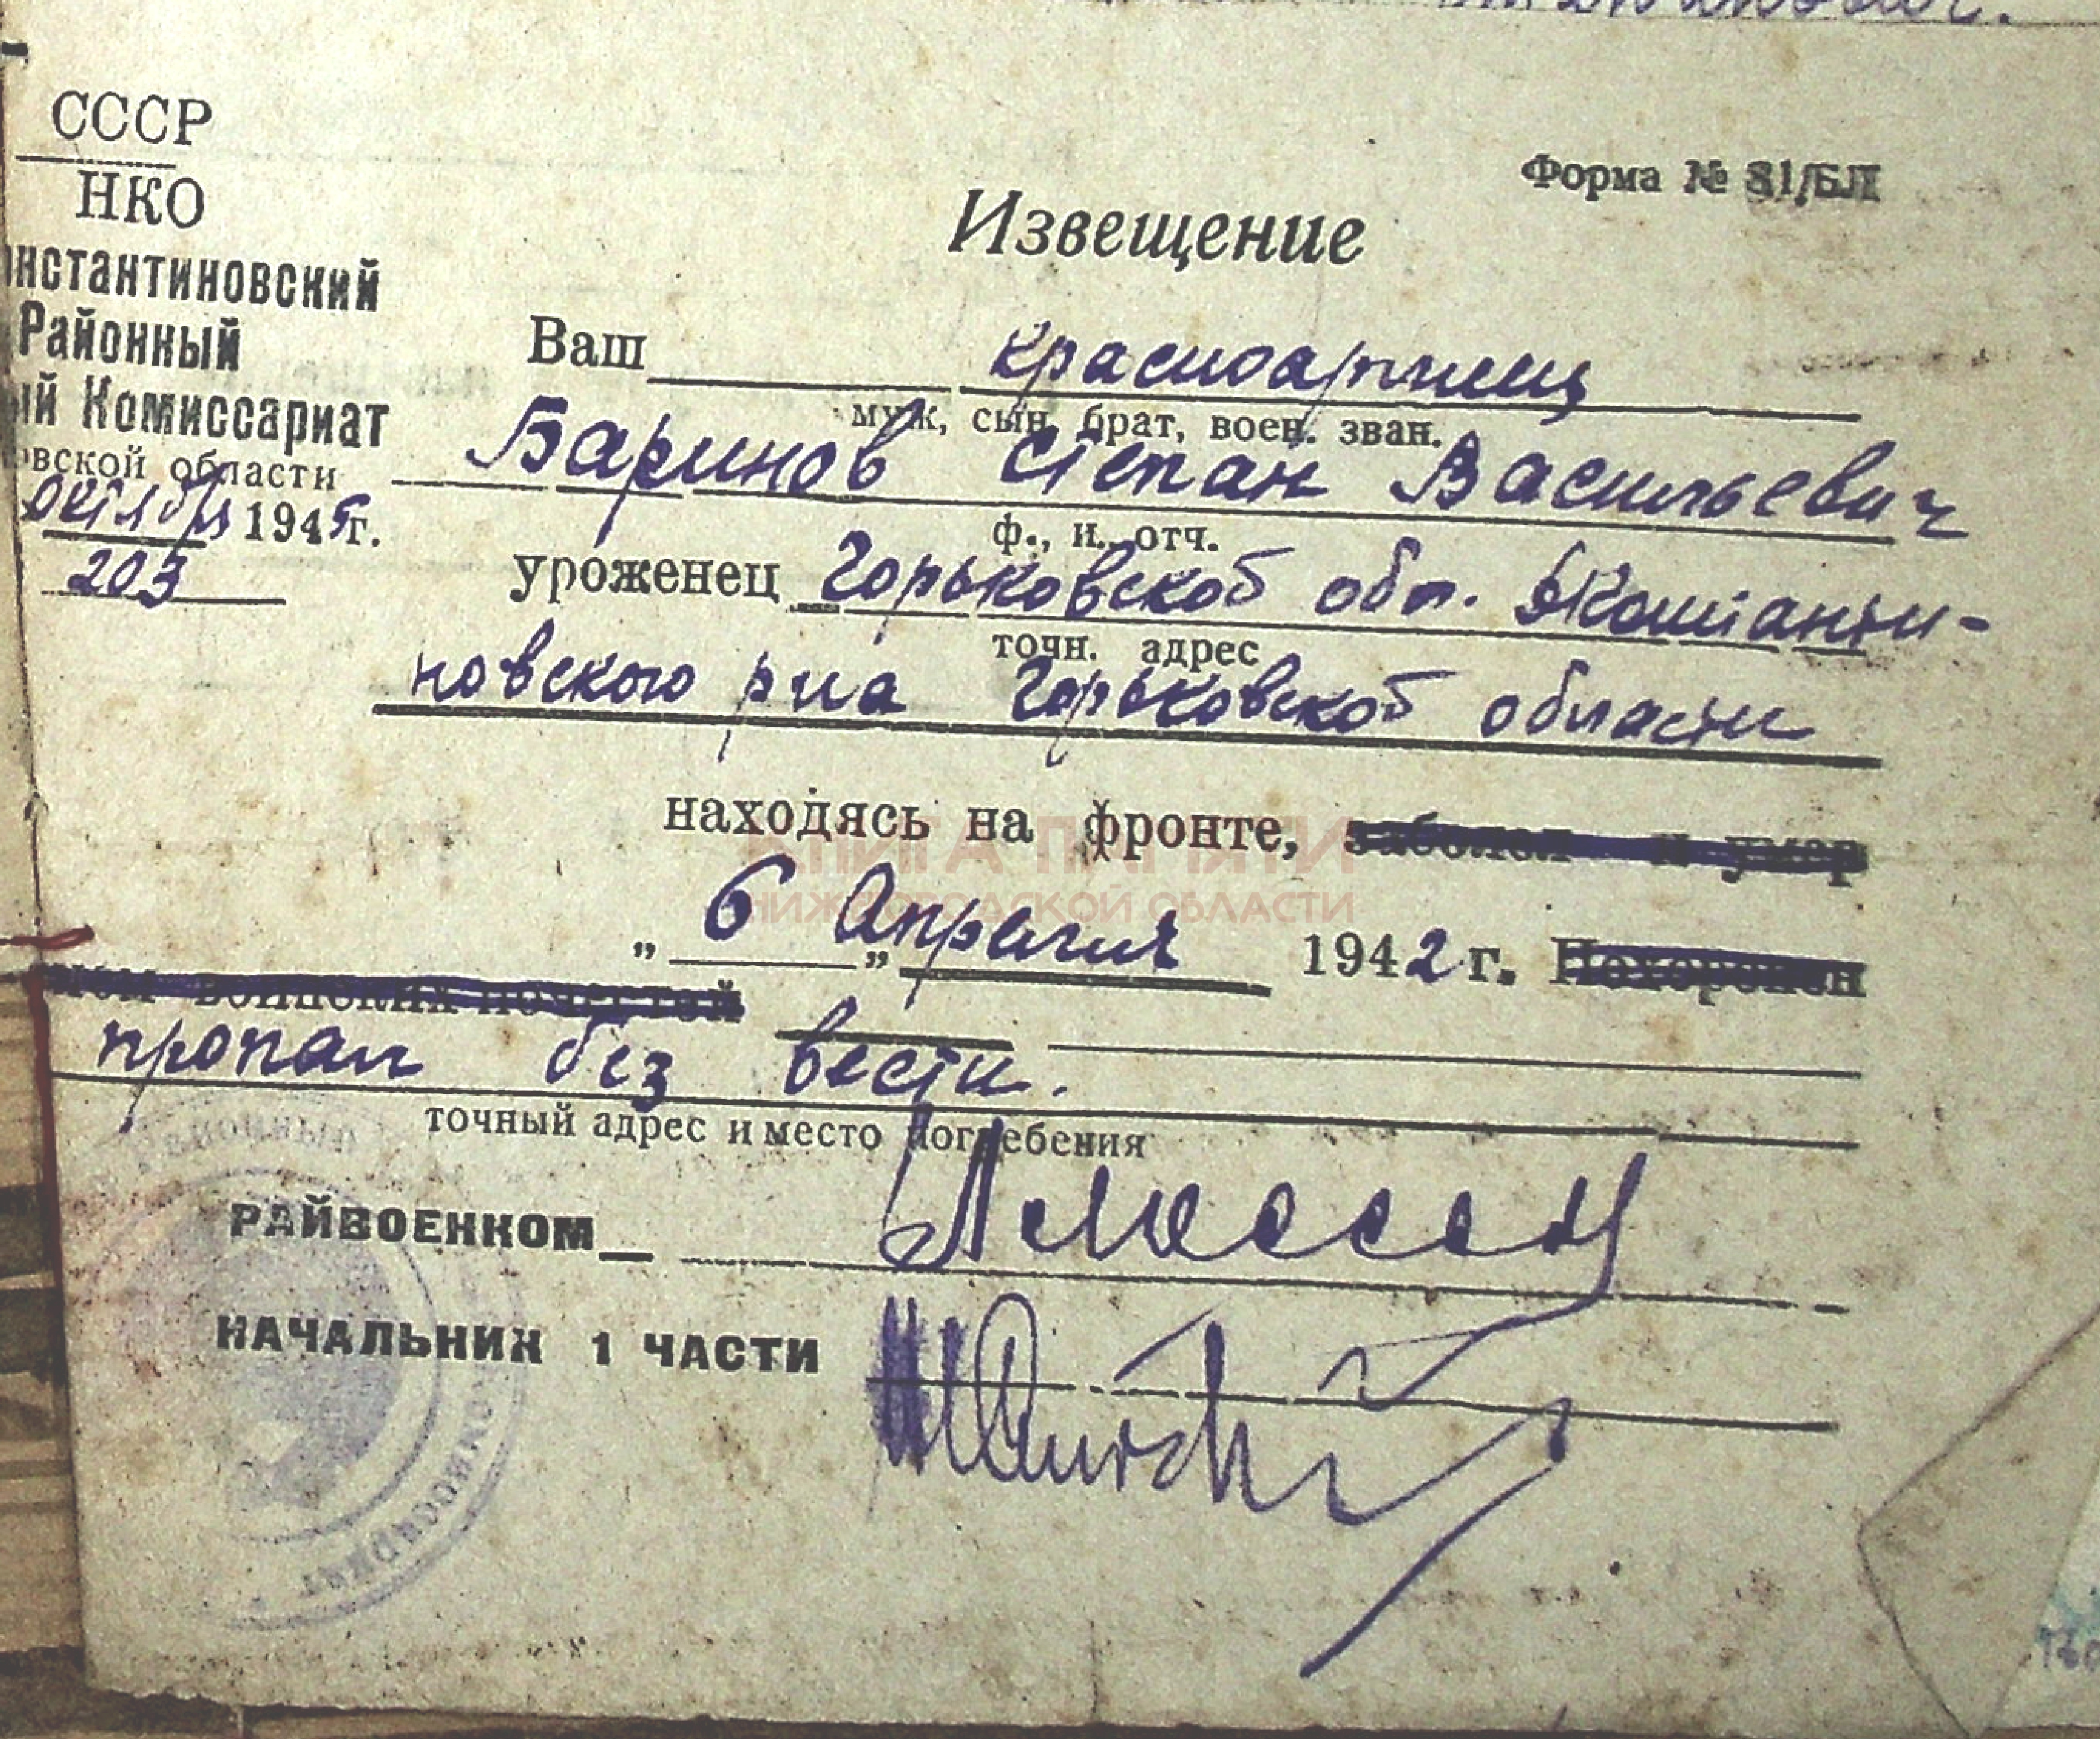 СССР
НКО
нстантиновский
Районный
ий Комиссариат
вской области
октября 1945г.
203
Форма № 81/БЛ
Извещение
Ваш красноармеец
муж, сын, брат, воен. зван.
Баринов Степан Васильевич
ф., и., отч.
уроженец Горьковской обл. Константи-
точн. адрес
новского р-на Горьковской области
находясь на фронте, заболел и умер
КНИГА ПАМЯТИ
НИЖЕГОРОДСКОЙ ОБЛАСТИ
„ 6 „ Апреля 1942 г. Похоронен
воинских почестей
пропал без вести.
точный адрес и место погребения
РАЙВОЕНКОМ
НАЧАЛЬНИК 1 ЧАСТИ
КОМИССАРИАТ